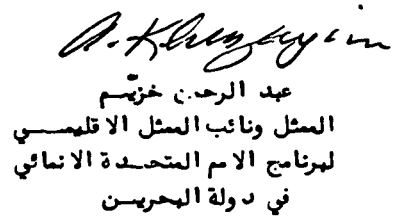 A. Khuzayim
عبد الرحمن خزيّم
الممثل ونائب الممثل الاقليمـــي
لبرنامج الامم المتحـدة الانمائي
في دولة البحريــن